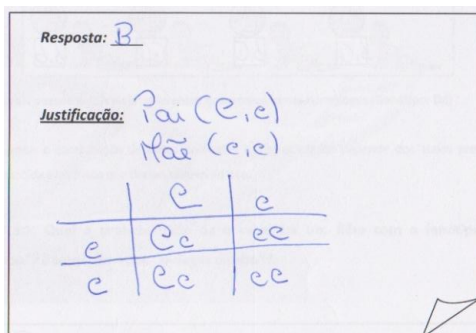 Resposta: B
Justificação: Pai (C, c)
Mãe (c, c)
C c
c Cc cc
c Cc cc